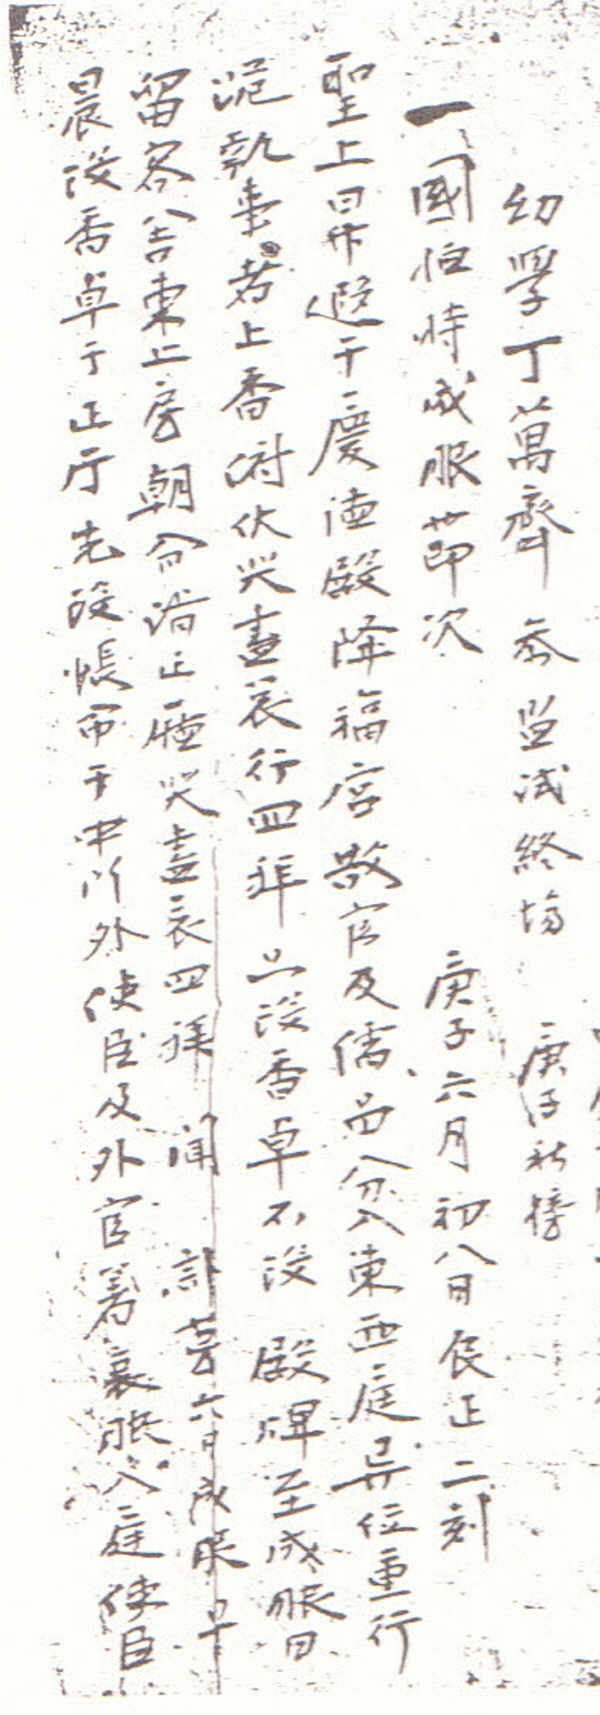 幼學丁萬齊 參監試終場 庚子秋榜
一國恤時成服節次 庚子六月初八日辰正二刻
聖上昇遐于慶德殿隆福宮 散官及儒品分入東西庭異位重行
執事者上香俯伏哭盡哀行四拜 只設香卓不設 殿牌至成服日
留客舍東上房朝夕詣正廳哭盡哀四拜 聞 訃第六日成服早
晨設香卓于正庁先設帳帘于中所外使臣及外官著衰服入庭使臣